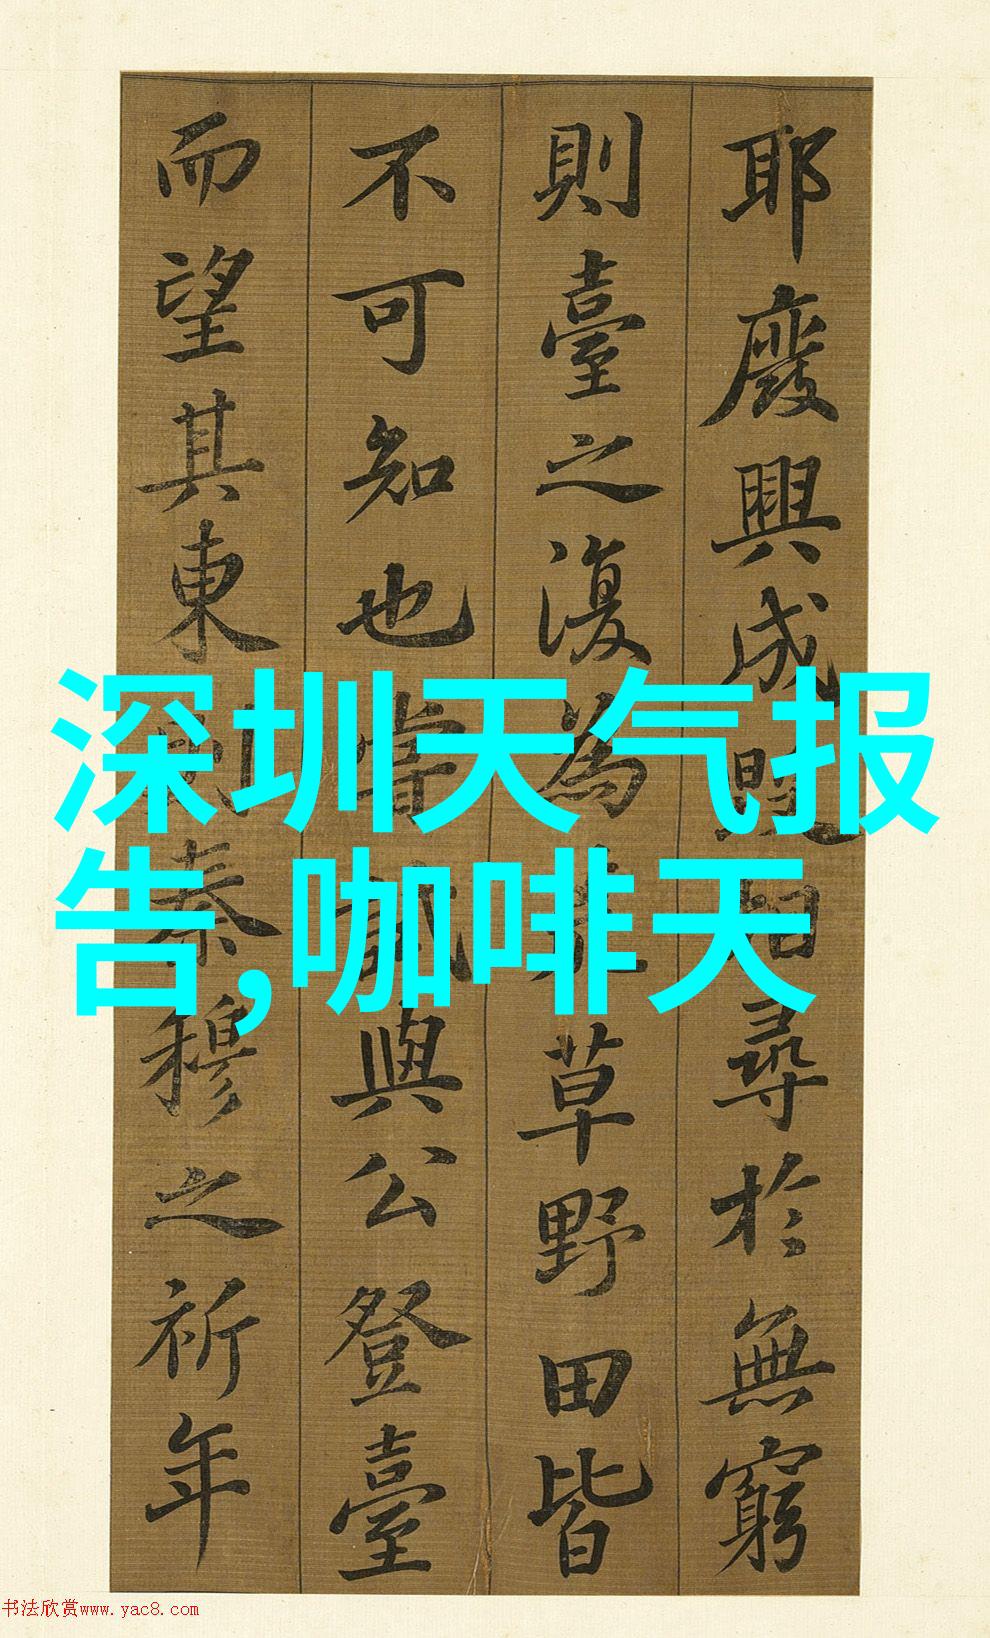 耶廢興成毀相尋於無窮
則臺之復為荒草野田皆
不可知也嘗試與公登臺
而望其東則秦穆之祈年
深圳天气报
告,咖啡天
书法欣赏www.yac8.com